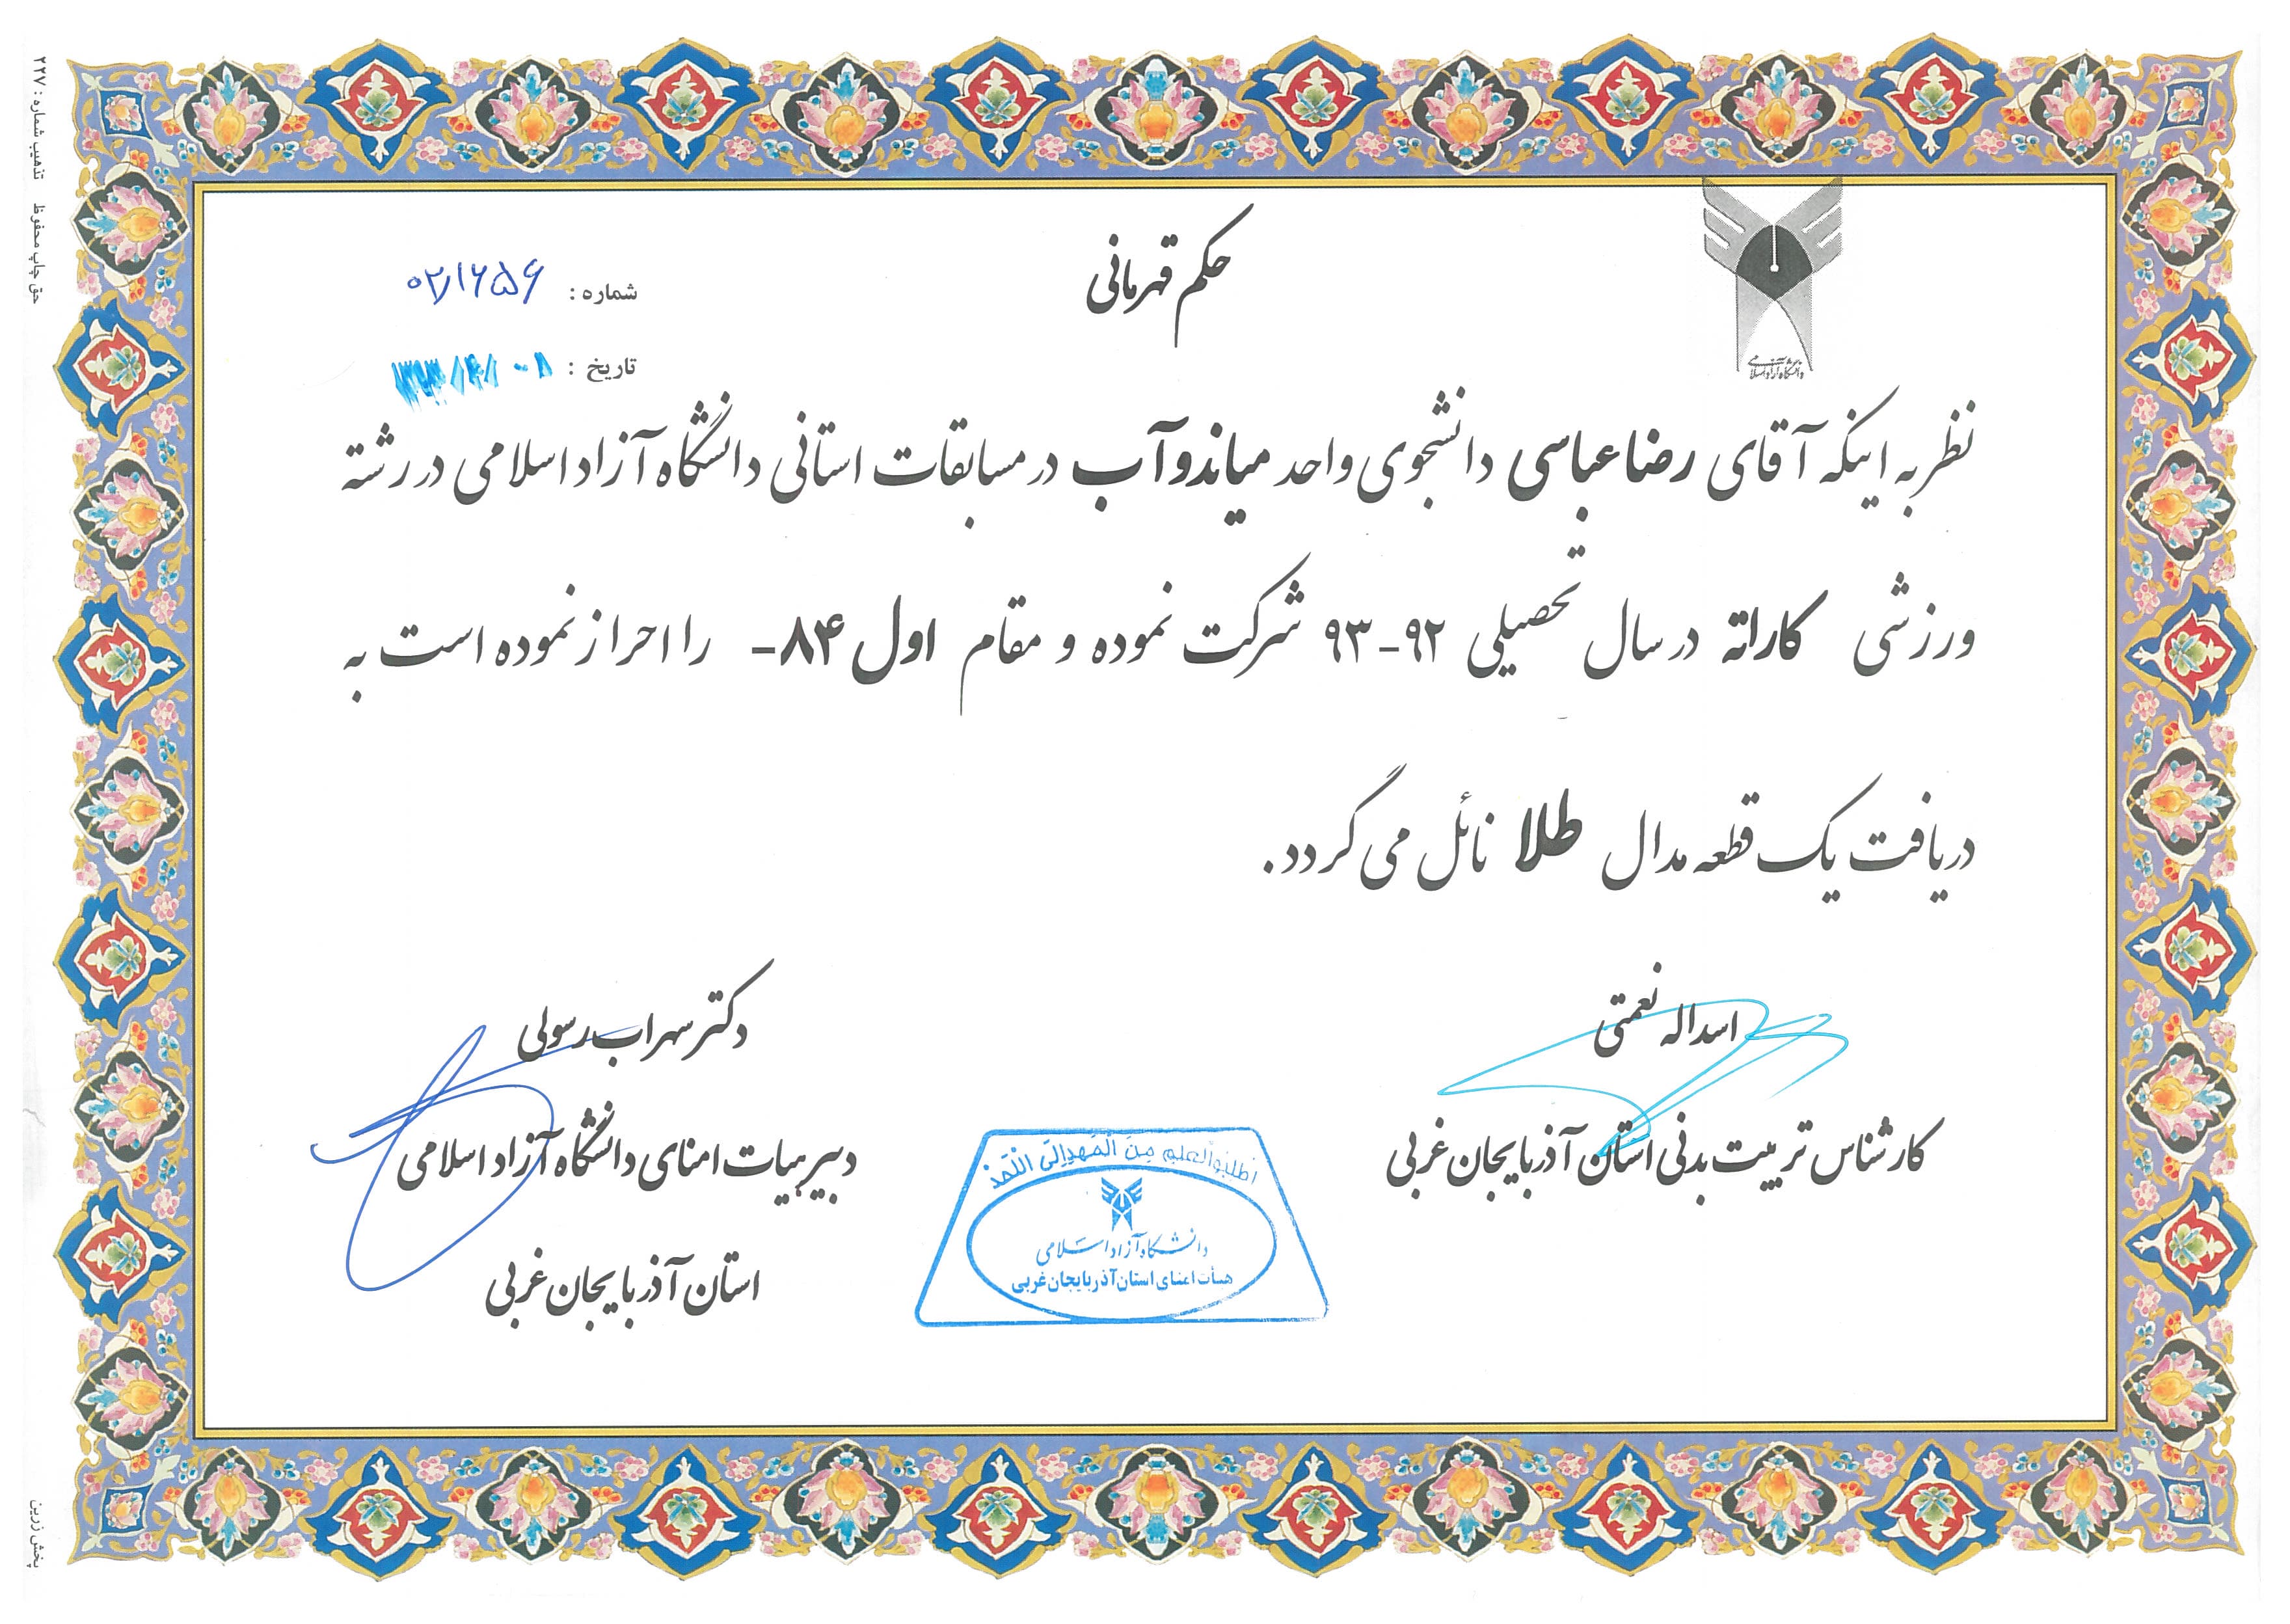 حکم قهرمانی
شماره : ۰۲/۱۶۵۶
تاریخ :
دانشگاه آزاد اسلامی
نظر به اینکه آقای رضا عباسی دانشجوی واحد میاندوآب در مسابقات استانی دانشگاه آزاد اسلامی در رشته
ورزشی کاراته در سال تحصیلی ۹۲-۹۳ شرکت نموده و مقام اول ۸۴- را احراز نموده است به
دریافت یک قطعه مدال طلا نائل می گردد.
اسداله نعمتی
کارشناس تربیت بدنی استان آذربایجان غربی
دکتر سهراب رسولی
دبیر هیات امنای دانشگاه آزاد اسلامی
استان آذربایجان غربی
اطلبوالعلم مِنَ الْمَهدِالَی اللّحَد
دانشگاه آزاد اسلامی
هیأت امنای استان آذربایجان غربی
حق چاپ محفوظ تذهیب شماره : ۲۲۷
پخش زرین